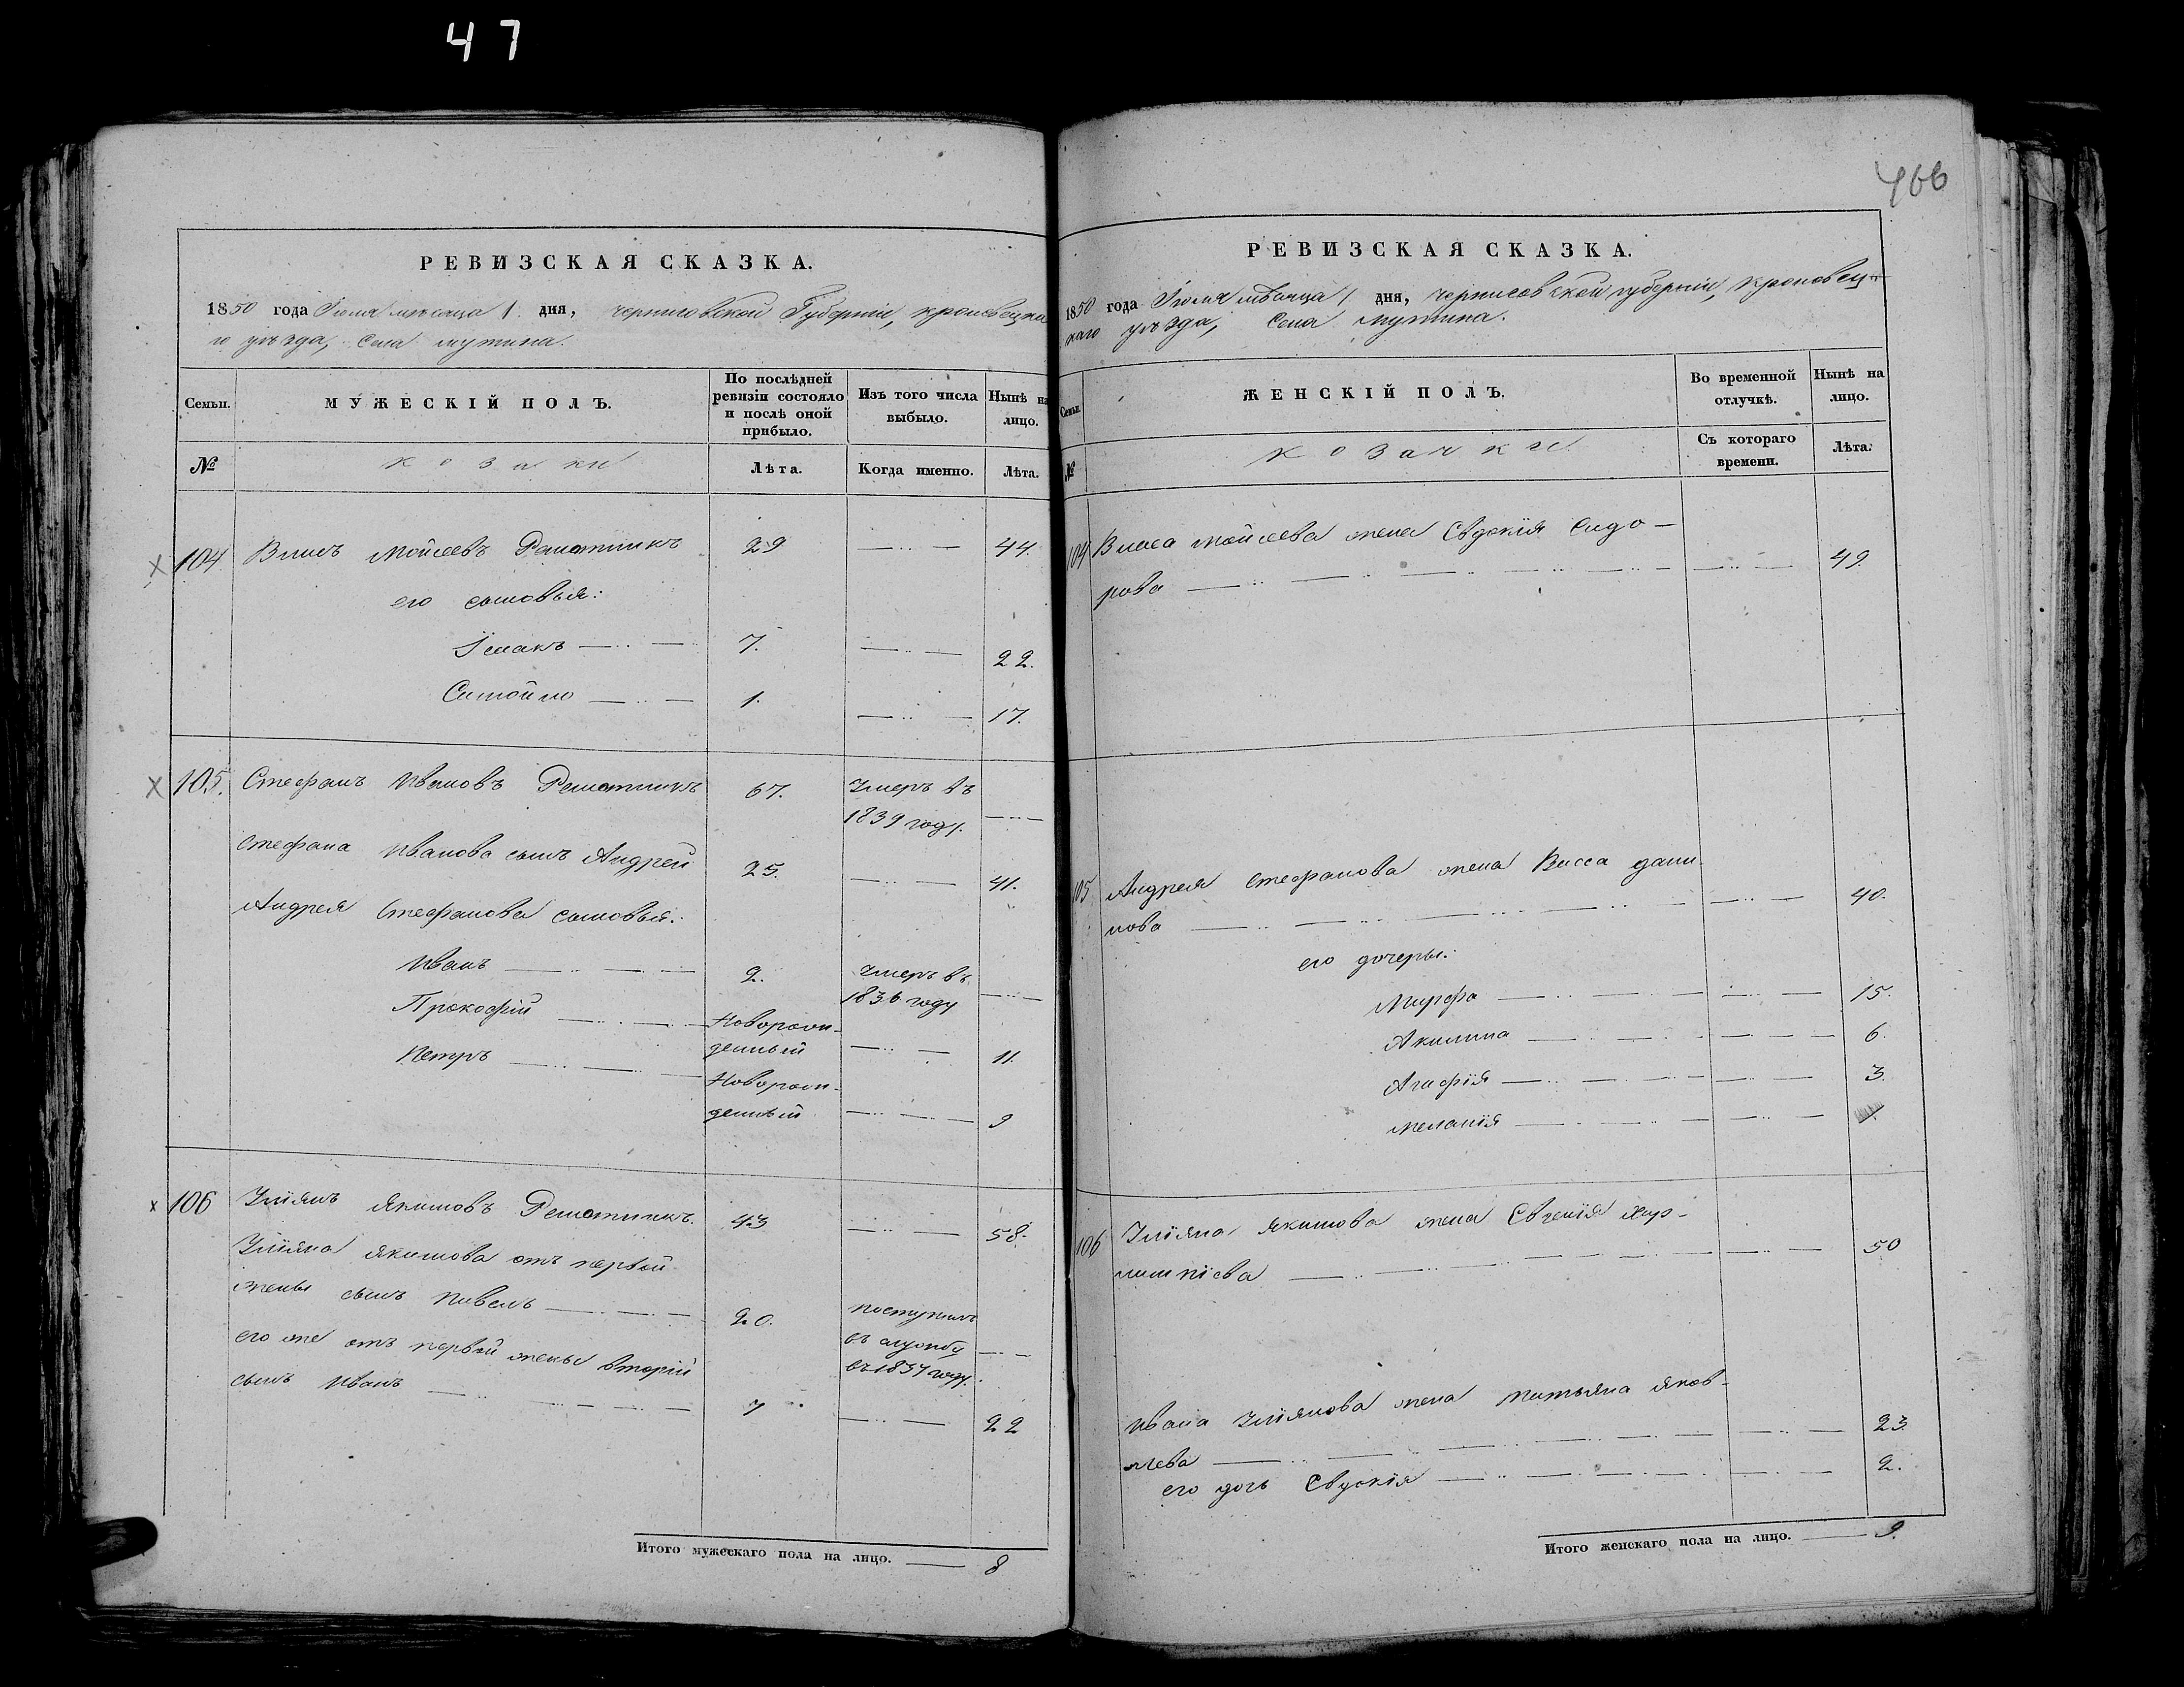 47
РЕВИЗСКАЯ СКАЗКА.
1850 года Іюля мѣсяца 1 дня, Черниговской Губерніи, Кролевецка
го уѣзда, Села Мутина.
Семьи.
МУЖЕСКІЙ ПОЛЪ.
По послѣдней ревизіи состояло и послѣ оной прибыло.
Изъ того числа выбыло.
Нынѣ на лицо.
№
козаки
Лѣта.
Когда именно.
Лѣта.
104 Власъ Мойсеевъ 29 44.
его сыновья:
Ісаакъ 7. 22.
Самойло 1. 17.
105. Стефанъ Ивановъ 67. Умеръ въ
1839 году.
Стефана Иванова сынъ Андрей 25. 41.
Андрея Стефанова сыновья:
Иванъ 2. Умеръ въ
1836 году
Прокофій Новорож-
денный 11.
Петръ Новорож-
денный 9
106 Уліянъ Якимовъ 43 58.
Уліяна Якимова отъ первой
жены сынъ Павелъ 20. поступилъ
въ службу
въ 1837 году.
его же отъ первой жены вторій
сынъ Иванъ 7 22
Итого мужескаго пола на лицо. 8
466
РЕВИЗСКАЯ СКАЗКА.
1850 года Іюля мѣсяца 1 дня, Черниговской губерніи, Кролевец-
каго уѣзда, Села Мутина.
Семьи.
ЖЕНСКІЙ ПОЛЪ.
Во временной отлучкѣ.
Нынѣ на лицо.
№
козачки
Съ котораго времени.
Лѣта.
104 Власа Мойсеева жена Евдокія Сидо-
рова 49.
105 Андрея Стефанова жена Васса Дани
лова 40.
его дочеры:
Марфа 15.
Акилина 6.
Агафія 3.
Меланія
106 Уліяна Якимова жена Евгенія
50
Ивана Уліянова жена Татьяна Яков-
лева 23.
его дочь Евдокія 2.
Итого женскаго пола на лицо. 9.